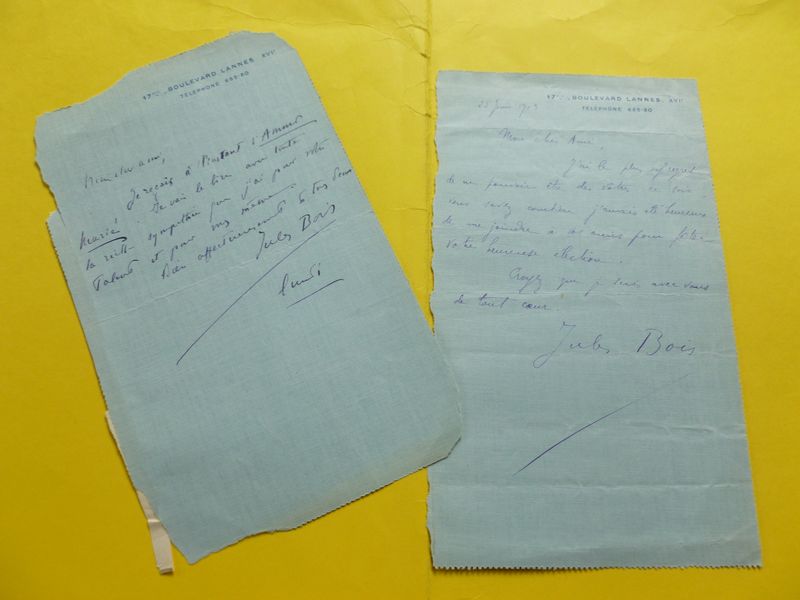 17 BOULEVARD LANNES XVIᵉ
TELEPHONE 685-80
Mon cher ami,
Je reçois à l'instant l'Amour
Marié. Je vais le lire avec toute
la sympathie que j'ai pour votre
talent et pour vous même.
Bien affectueusement à tous deux
Jules Bois
lundi
17 BOULEVARD LANNES XVIᵉ
TELEPHONE 685-80
25 1913
Mon cher Ami,
J'ai le plus regret
de ne pouvoir être des vôtres ce soir.
Vous savez combien j'aurais été heureux
de me joindre à vos amis pour fêter
votre heureuse élection.
Croyez que je serai avec vous
de tout cœur.
Jules Bois